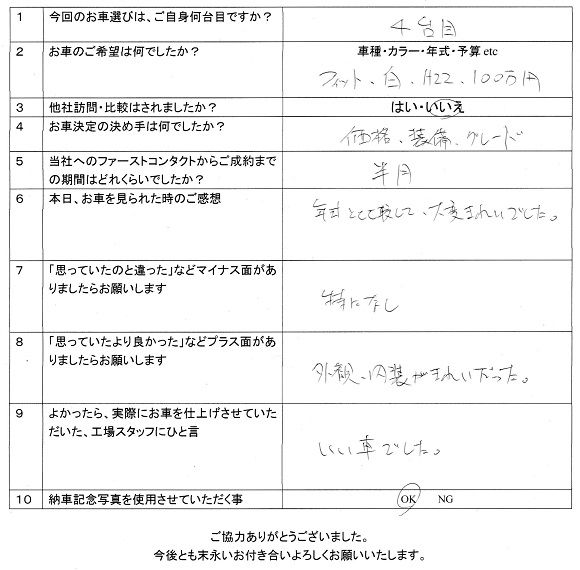 1 今回のお車選びは、ご自身何台目ですか？ 4台目
2 お車のご希望は何でしたか？ 車種・カラー・年式・予算 etc
フィット、白、H22、100万円
3 他社訪問・比較はされましたか？ はい・いいえ
4 お車決定の決め手は何でしたか？ 価格、装備、グレード
5 当社へのファーストコンタクトからご成約まで
の期間はどれくらいでしたか？ 半月
6 本日、お車を見られた時のご感想
年式と比較して、大変きれいでした。
7 「思っていたのと違った」などマイナス面があ
りましたらお願いします
特になし
8 「思っていたより良かった」などプラス面があ
りましたらお願いします
外観、内装がきれいだった。
9 よかったら、実際にお車を仕上げさせていた
だいた、工場スタッフにひと言
いい車でした。
10 納車記念写真を使用させていただく事 OK NG
ご協力ありがとうございました。
今後とも末永いお付き合いよろしくお願いいたします。